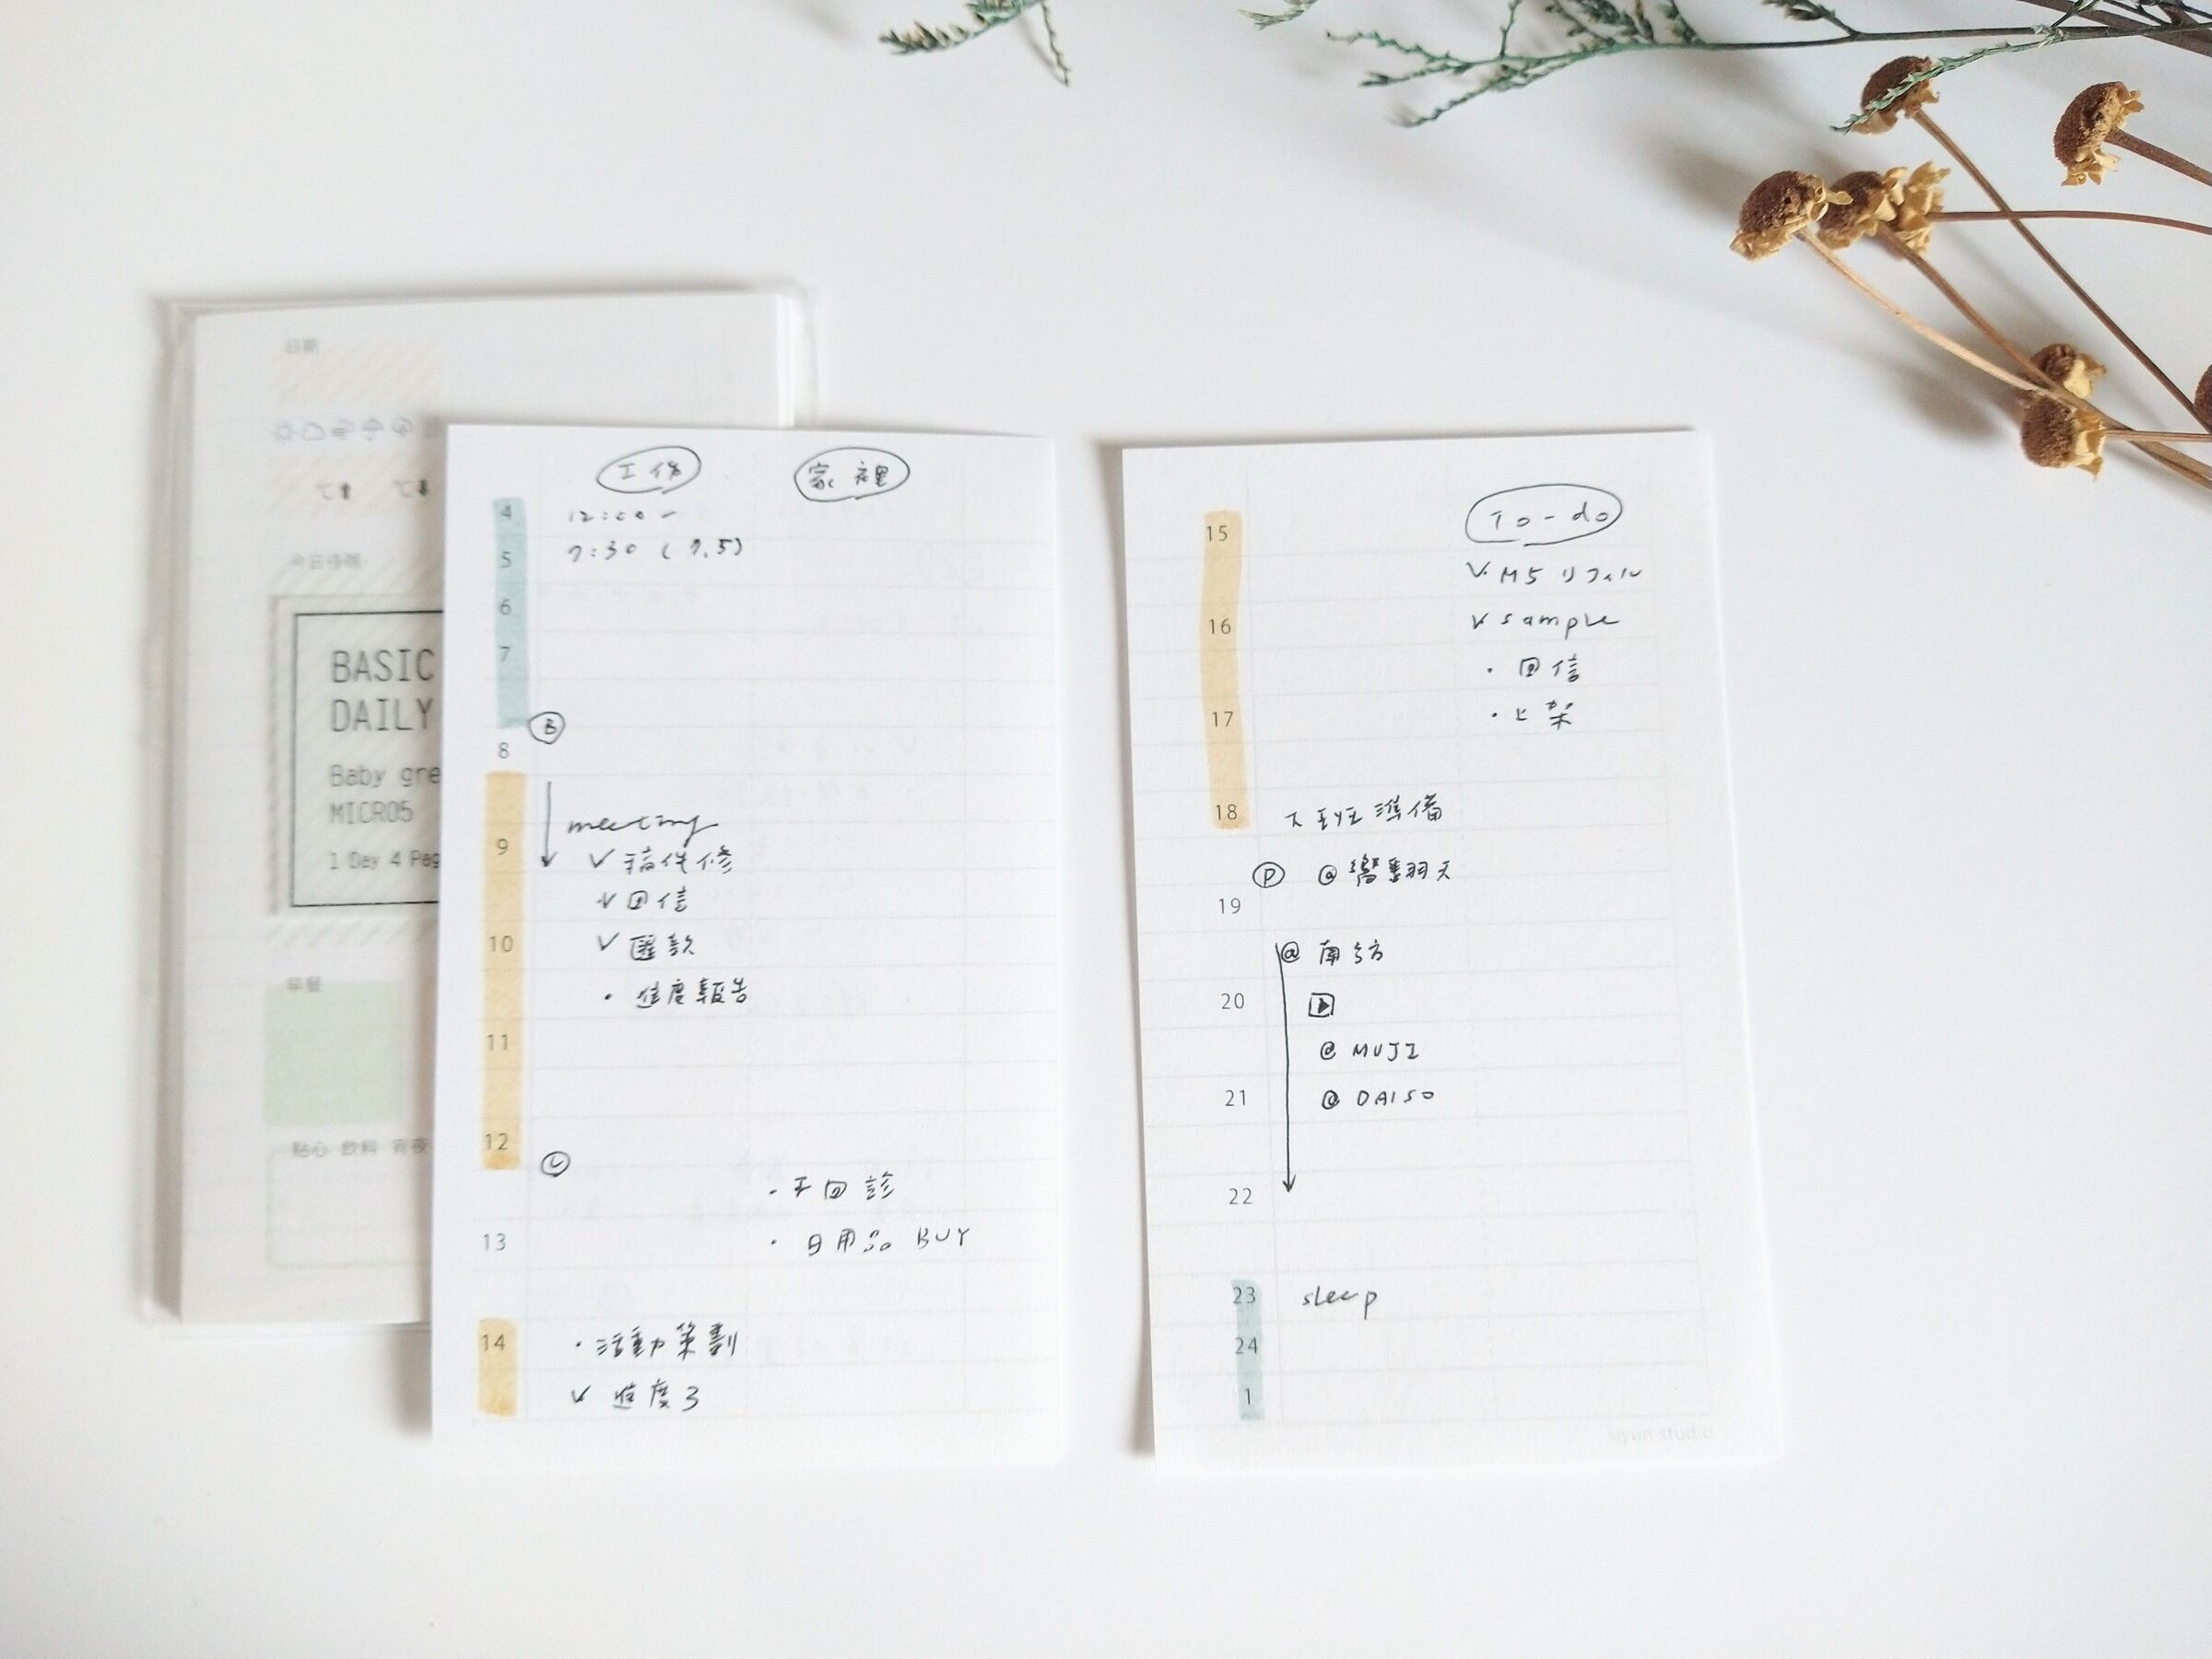 日期
て⬆ て⬇
今日待辦
BASIC
DAILY
Baby gre
MICRO5
1 Day 4 Pag
早餐
點心 飲料 宵夜
工作 家裡
4 12:00~
5 7:30 (7.5)
6
7
B
8
meeting
9 ✓ 稿件修
✓ 回信
10 ✓ 匯款
• 進度報告
11
12
L
• 回診
13 • 日用品 BUY
14 • 活動策劃
✓ 進度3
To-do
15
✓ M5 リフィル
16 ✓ sample
• 回信
17 • 上架
18 下班準備
D @ 饗翻天
19
@ 南紡
20
@ MUJI
21 @ DAISO
22
23 sleep
24
1
siyun studio